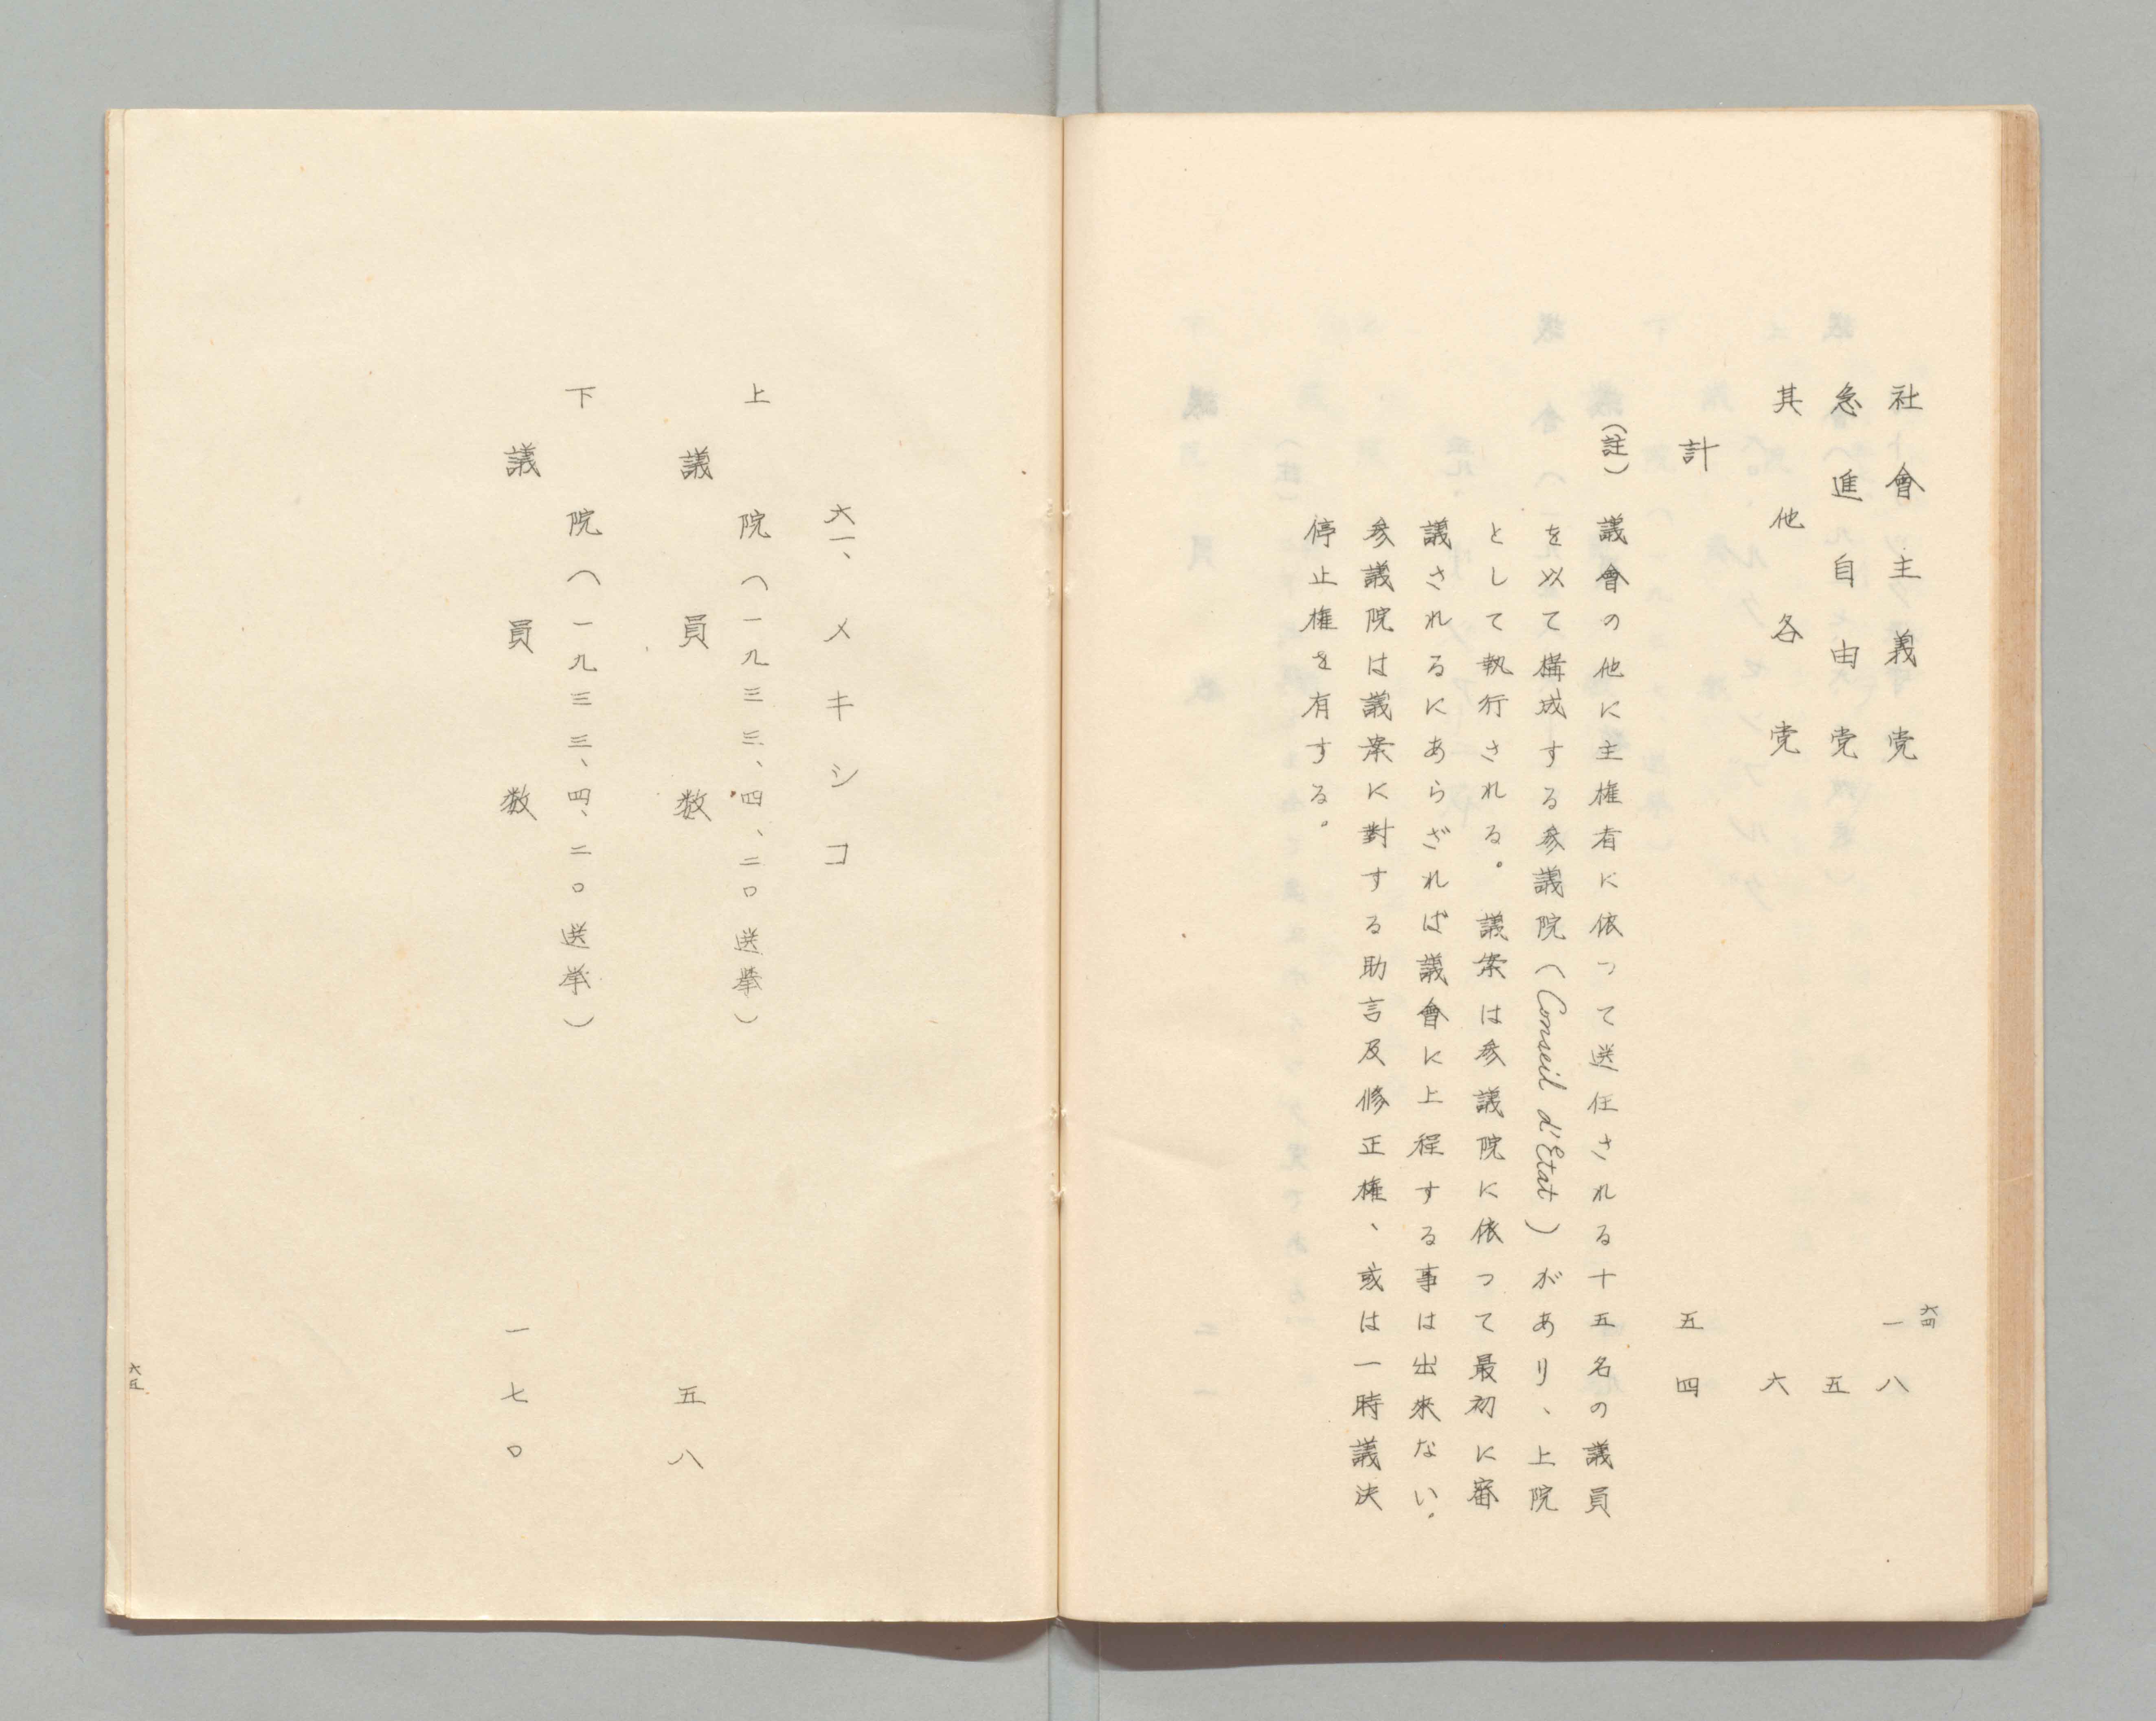 六四
社會主義党 一八
急進自由党 五
其他各党 六
計 五四
(註) 議會の他に主権者に依つて送任される十五名の議員
を以て構成する参議院(Conseil d'Etat)があり、上院
として執行される。議案は参議院に依つて最初に審
議されるにあらざれば議會に上程する事は出来ない。
参議院は議案に對する助言及修正権、或は一時議決
停止権を有する。
六一、メキシコ
上院(一九三三、四、二〇送擧)
議員数 五八
下院(一九三三、四、二〇送挙)
議員数 一七〇
六五